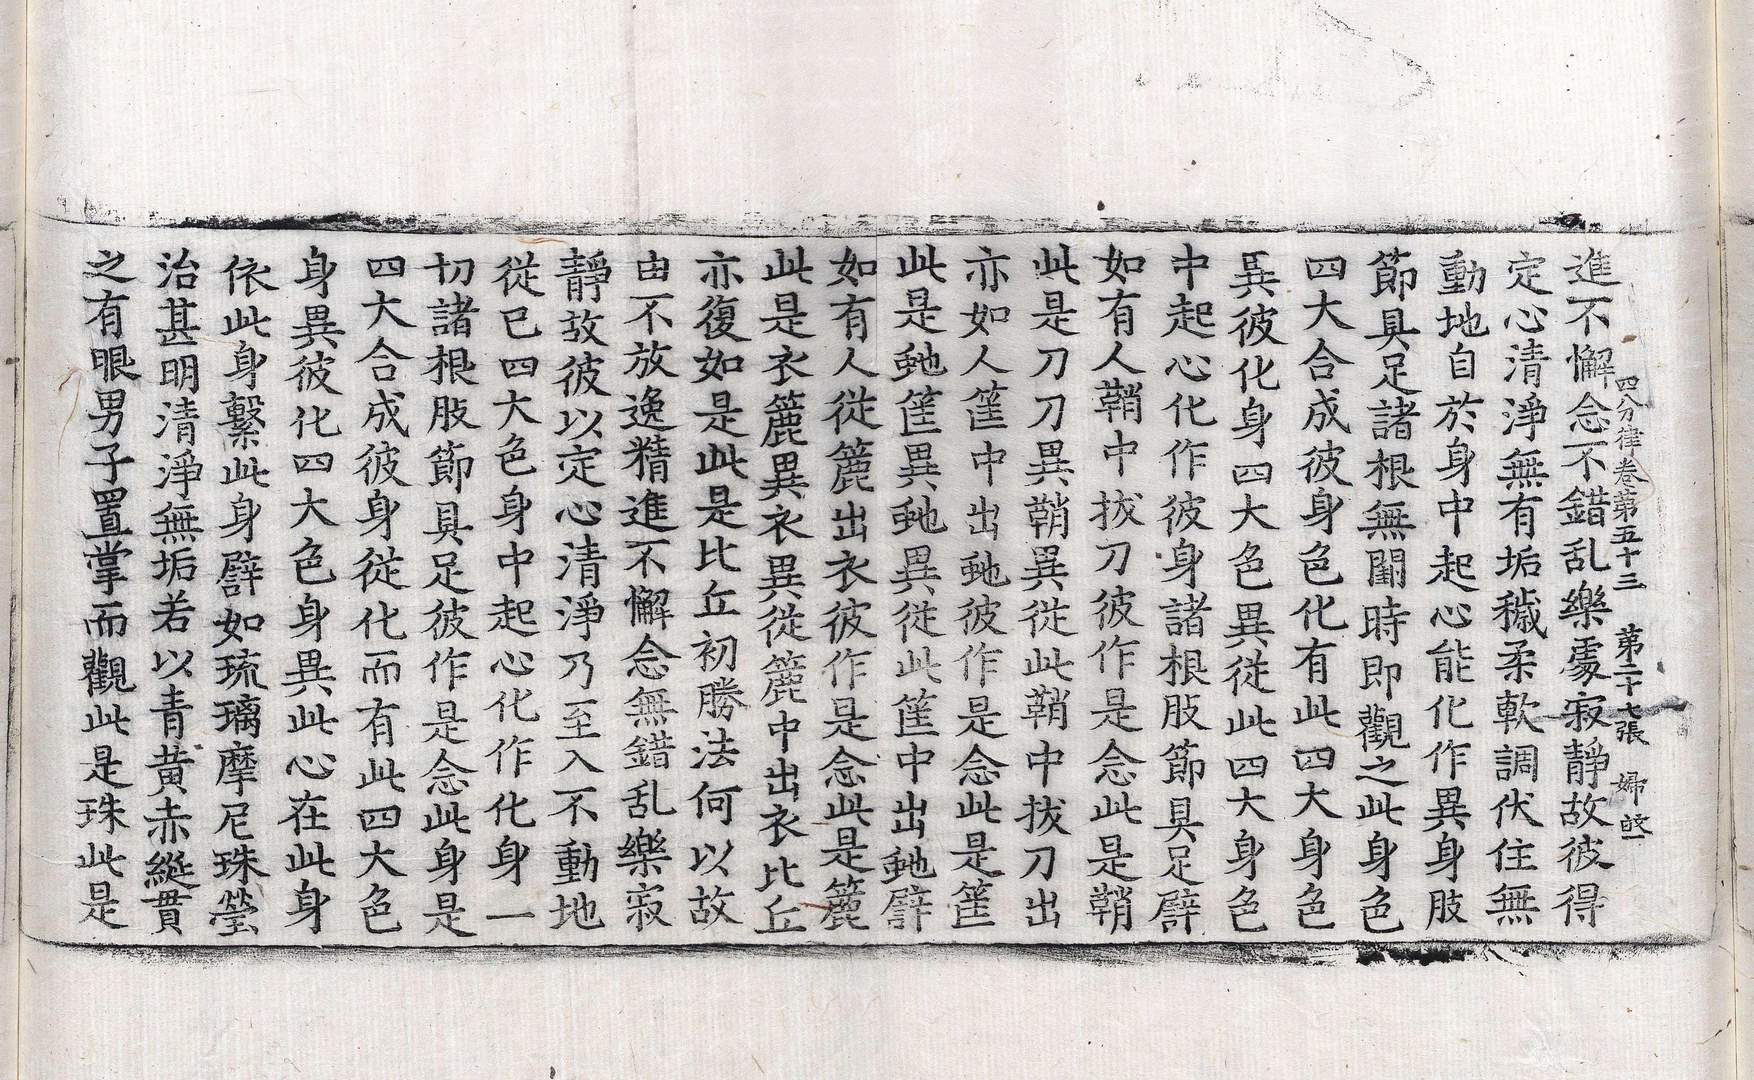 四分律卷第五十三 第二十七張 婦
進不懈念不錯乱樂處寂靜故彼得
定心清淨無有垢穢柔軟調伏住無
動地自於身中起心能化作異身肢
節具足諸根無闕時即觀之此身色
四大合成彼身色化有此四大身色
異彼化身四大色異從此四大身色
中起心化作彼身諸根肢節具足譬
如有人鞘中拔刀彼作是念此是鞘
此是刀刀異鞘異從此鞘中拔刀出
亦如人篋中出虵彼作是念此是篋
此是虵篋異虵異從此篋中出虵譬
如有人從簏出衣彼作是念此是簏
此是衣簏異衣異從簏中出衣比丘
亦復如是此是比丘初勝法何以故
由不放逸精進不懈念無錯乱樂寂
靜故彼以定心清淨乃至入不動地
從已四大色身中起心化作化身一
切諸根肢節具足彼作是念此身是
四大合成彼身從化而有此四大色
身異彼化四大色身異此心在此身
依此身繫此身譬如琉璃摩尼珠瑩
治甚明清淨無垢若以青黃赤綖貫
之有眼男子置掌而觀此是珠此是